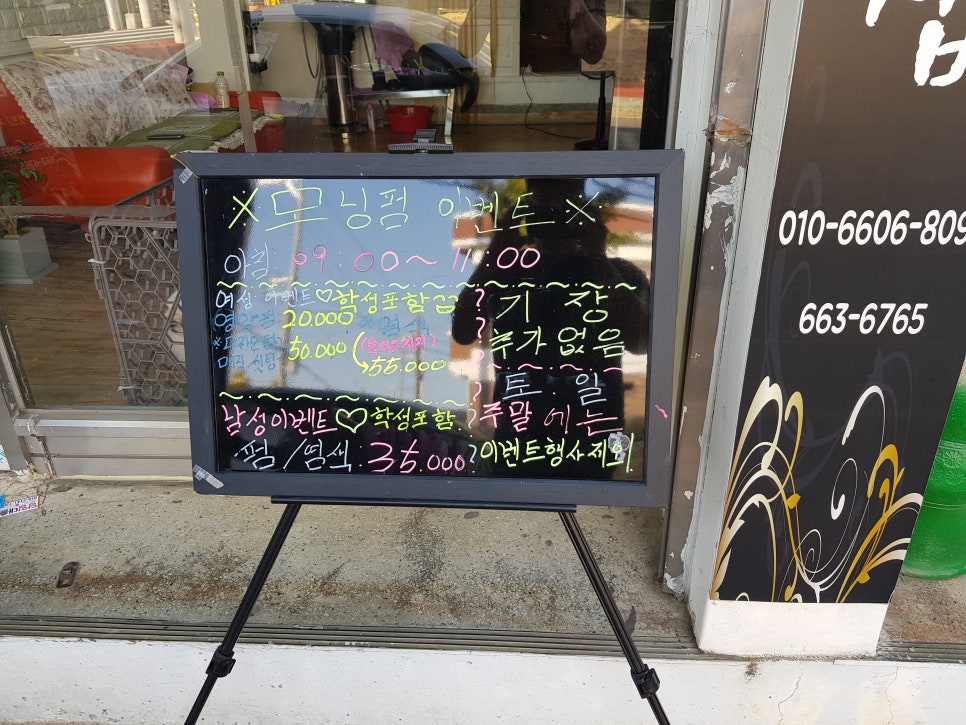 ※ 모닝펌 이벤트 ※
아침: 09:00~11:00
여성 이벤트♡학생포함
영양펌 20.000
50.000
55.000
매직 셋팅
기장
추가없음
토.일
주말에는
이벤트행사제외
남성이벤트♡학생포함
펌/염색 35.000
010-6606-809
663-6765